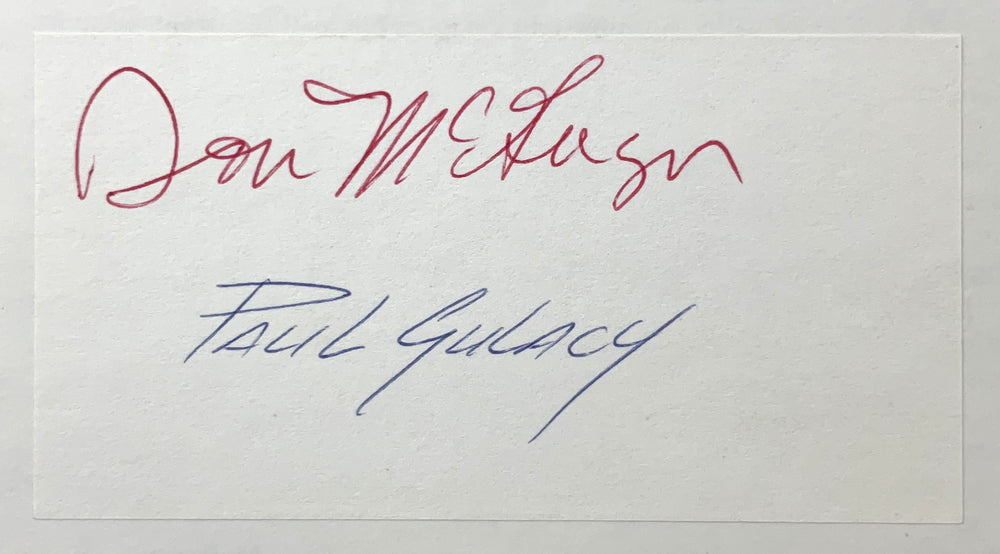 Don McGregor
Paul Gulacy